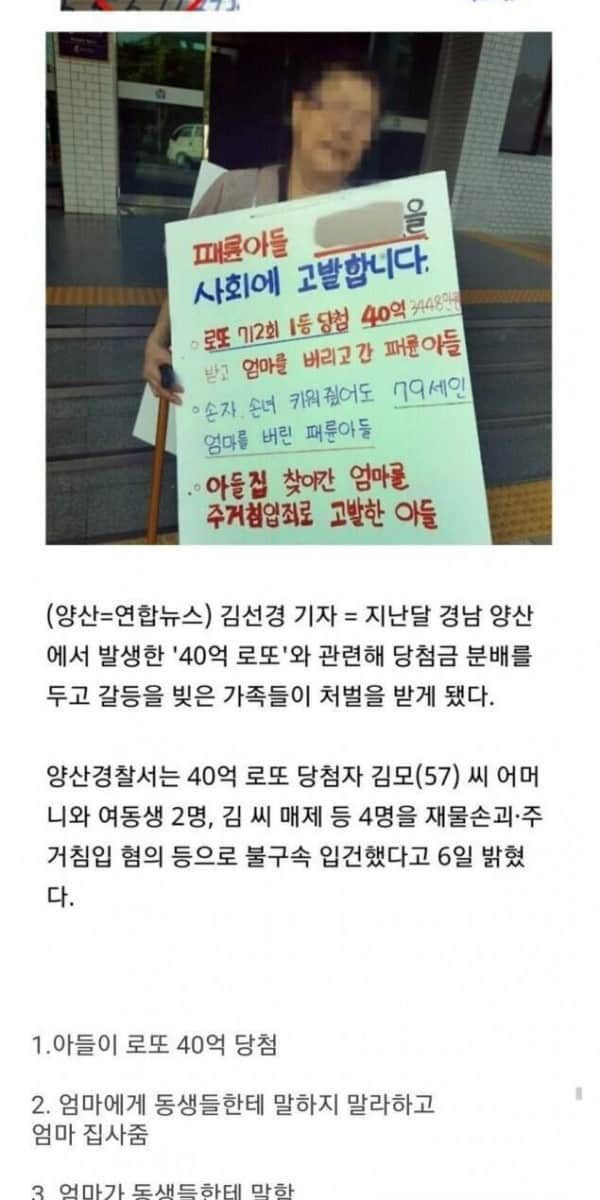 패륜아들 을
사회에 고발합니다.
로또 712회 1등당첨 40억 3448만원
받고 엄마를 버리고 간 패륜아들
손자.손녀 키워줬어도 79세인
엄마를 버린 패륜아들
아들집 찾아간 엄마를
주거침입죄로 고발한 아들
(양산=연합뉴스) 김선경 기자 = 지난달 경남 양산
에서 발생한 '40억 로또'와 관련해 당첨금 분배를
두고 갈등을 빚은 가족들이 처벌을 받게 됐다.
양산경찰서는 40억 로또 당첨자 김모(57) 씨 어머
니와 여동생 2명, 김 씨 매제 등 4명을 재물손괴·주
거침입 혐의 등으로 불구속 입건했다고 6일 밝혔
다.
1.아들이 로또 40억 당첨
2. 엄마에게 동생들한테 말하지 말라하고
엄마 집사줌
3. 엄마가 동생들한테 말함